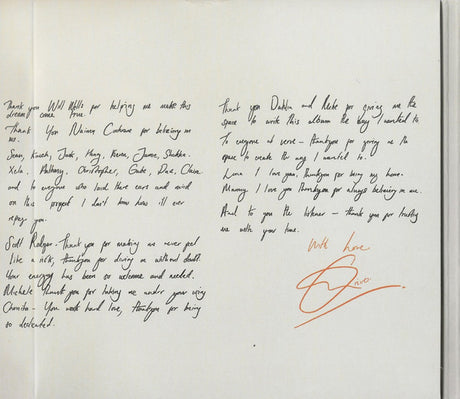 Thank you Will Wells for helping me make this
dream come true.
Thank You Naima Cochrane for believing in
me.
Sean, Jade, Meg, Kieran, James,
Xela, Anthony, Christopher, Gabe, Dave,
and to everyone who lent their ears and mind
on this project I don't know how i'll ever
repay you.
Scott Rodger - Thank you for making me never feel
like a risk, thankyou for diving in without doubt.
Your energy has been so welcome and needed.
Michele thank you for taking me under your wing
- You work hard love, thankyou for being
so dedicated.
Thank you Dahlia and for giving me the
space to write this album the way I wanted to.
To everyone at verve - thankyou for giving me the
space to create the way I wanted to.
I love you, thankyou for being my home.
Mummy I love you thankyou for always believing in me.
And to you the listener - thank you for trusting
me with your time.
With love